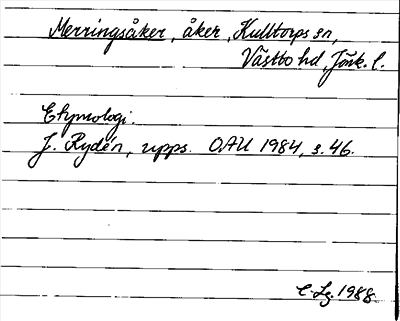 Merringsåker, åker, Kulltorps sn,
Västbo hd, Jönk. l.
Etymologi.
J. Rydén, upps. OAU 1984, s. 46.
C-Lg. 1988